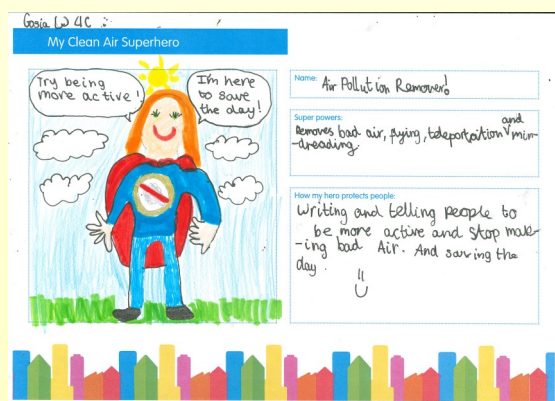 Gosia W 4C
My Clean Air Superhero
Try being
more active!
I'm here
to save
the day!
Name: Air Pollution Remover!
Super powers:
Removes bad air, flying, teleportaition and min-
-dreading.
How my hero protects people:
Writing and telling people to
be more active and stop mak-
-ing bad Air. And saving the
day.